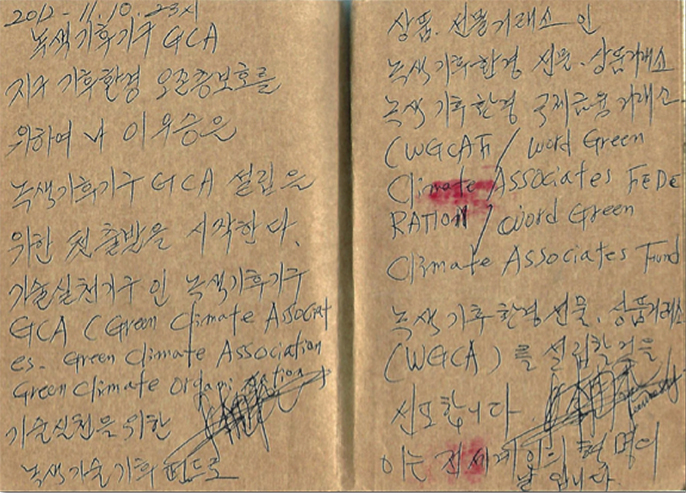 2012-11.10. 23시
녹색기후기구 GCA
지구 기후환경 오존층보호를
위하여 나 이우승은
녹색기후기구 GCA 설립을
위한 첫출발을 시작한다.
기술실천기구 인 녹색기후기구
GCA (Green Climate Associat
es. Green Climate Association
Green Climate Organi zation
기술실천을 위한
녹색기술기후펀드로
상품. 선물거래소 인
녹색기후환경 선물.상품거래소
녹색 기후환경 국제금융거래소
(WGCAF / Word Green
Climate Associates FEDE
RATION / Word Green
Climate Associates Fund
녹색 기후환경선물. 상품거래소
(WGCA)를 설립할것을
선포합니다
이는 전세계인의 혁명이
날 입니다.